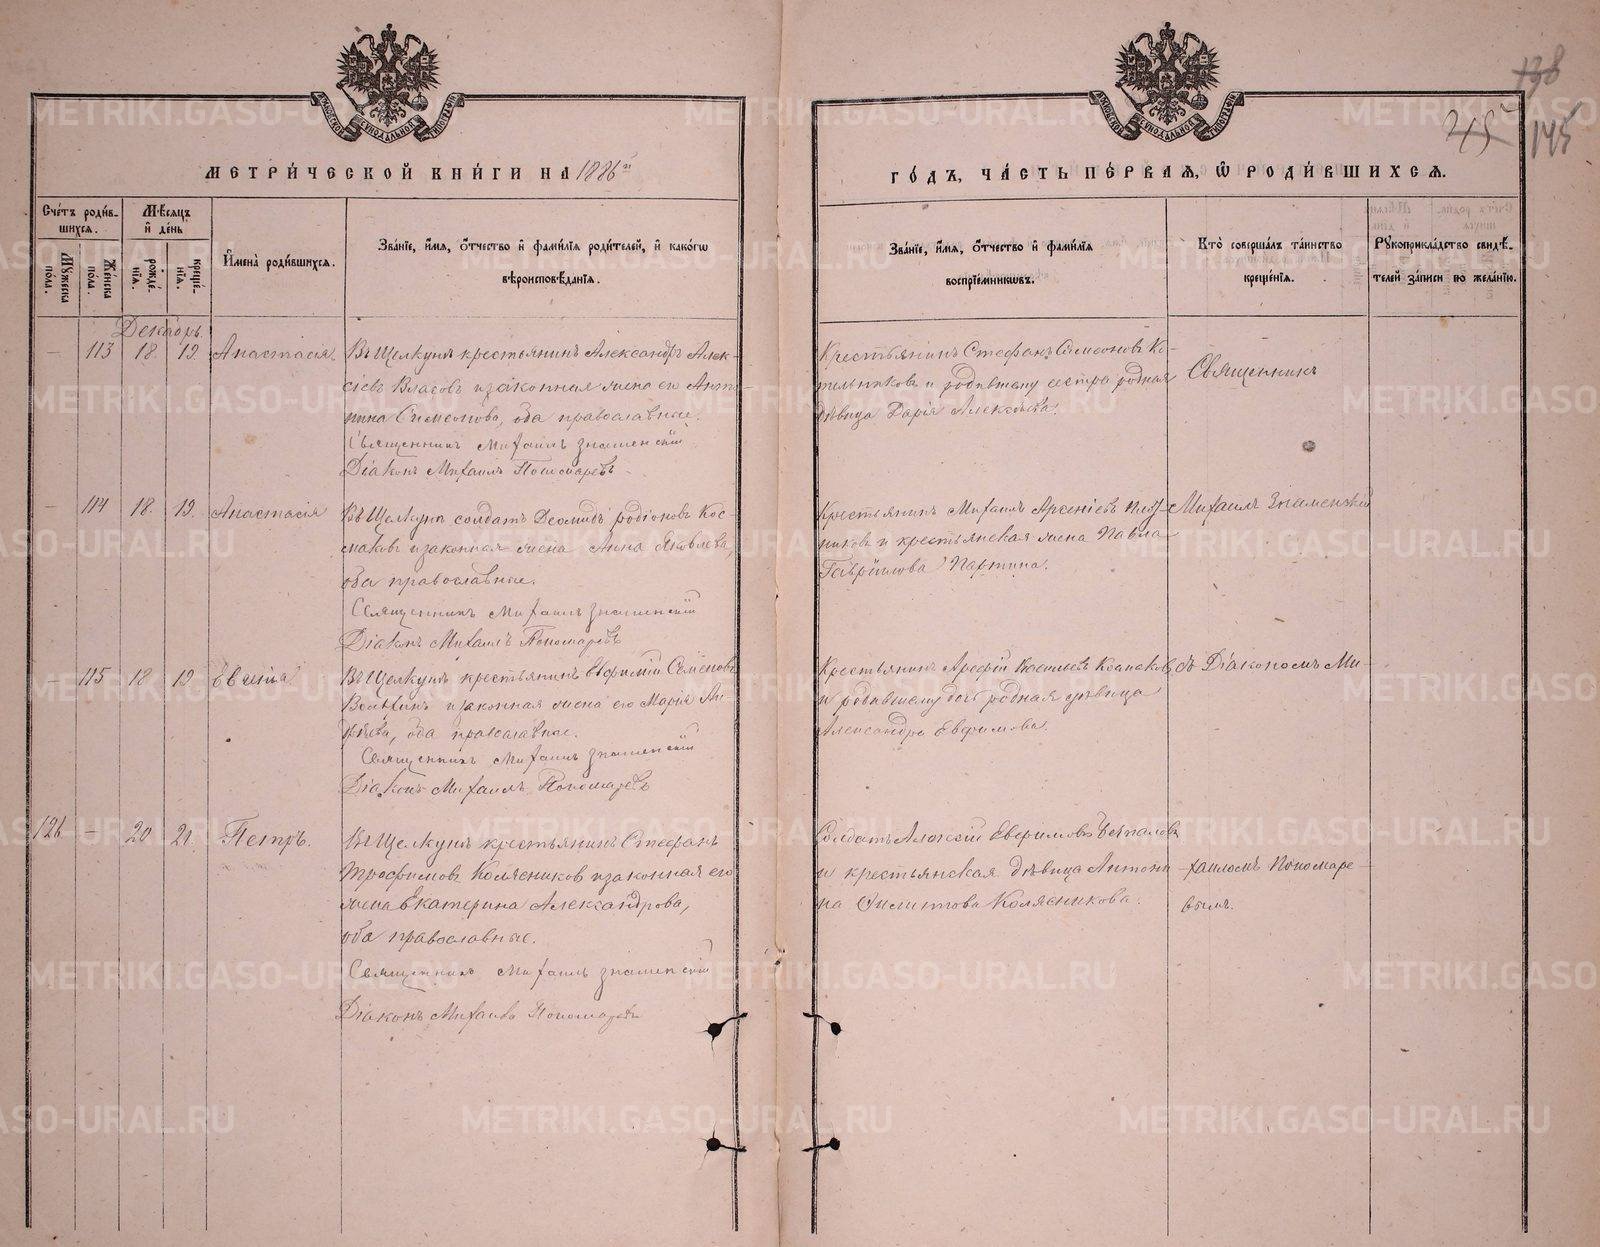 138
215 145
МЕТРИ́ЧЕСКОЙ КНИ́ГИ НА 1886й
ГО́ДЪ, ЧА́СТЬ ПЕ́РВАЯ, Ѿ РОДИ́ВШИХСЯ.
Сче́тъ роди́в-
шихся.
Мꙋжеска пола.
Же́нска пола.
Мѣ́сяцъ и́ де́нь
рожде́-
нїя.
креще́-
нїя.
И҆мена̀ роди́вшихся.
Зва́нїе, и҆́мя, ѻ҆́тчество и҆ фами́лїя роди́телей, и҆ како́гѡ
вѣроисповѣ́данїя.
Зва́нїе, и҆́мя, ѻ҆́тчество и҆ фами́лїя
воспрїе́мникѡвъ.
Кто̀ соверша́лъ та́инство
креще́нїя.
Рꙋкоприкла́дство свидѣ́-
телей за́писи по жела́нїю.
Декабрь
— 113 18. 19. Анастасія
Въ Щелкунѣ крестьянинъ Александръ Алек-
сіевъ Власовъ и законная жена его Анто-
нина Симеонова, оба православные.
Священникъ Михаилъ Знаменскій
Діаконъ Михаилъ Пономаревъ
Крестьянинъ Стефанъ Симеоновъ Ко-
тельниковъ и родившему сестра родная
дѣвица Дарія Алексѣева.
Священникъ
— 114 18. 19. Анастасія
Въ Щелкунѣ солдатъ Деомидъ Родіоновъ Кос-
маковъ и законная жена Анна Яковлева,
оба православные.
Священникъ Михаилъ Знаменскій
Діаконъ Михаилъ Пономаревъ
Крестьянинъ Михаилъ Арсеніевъ
никовъ и крестьянская жена Павла
Гавріилова Партина.
Михаилъ Знаменскій
— 115 18 19 Евгенія
Въ Щелкунѣ крестьянинъ Евфимій Семеновъ
и законная жена его Марія Ан-
дреева, оба православные.
Священникъ Михаилъ Знаменскій
Діаконъ Михаилъ Пономаревъ
Крестьянинъ Арефій
и родившему дочь родная дѣвица
Александра Евфимова.
съ Діакономъ Ми-
126 — 20 21. Петръ.
Въ Щелкунѣ крестьянинъ Стефанъ
Трофимовъ Колясниковъ и законная его
жена Екатерина Александрова,
оба православные.
Священникъ Михаилъ Знаменскій
Діаконъ Михаилъ Пономаревъ
Солдатъ Алексій Евфимовъ Безпаловъ
и крестьянская дѣвица Антони-
на Филиппова Колясникова.
хаиломъ Пономаре-
вымъ.
METRIKI.GASO-URAL.RU